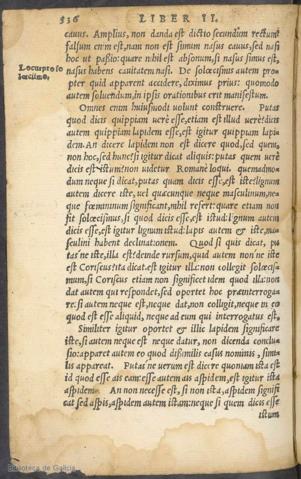 536 LIBER II.
cauus. Amplius, non danda est dictio secundum rectum:
falsum enim est, nam non est simum nasus cauus, sed nasi
hoc ut passio: quare nihil est absonum, si nasus simus est,
nasus habens cauitatem nasi. De solœcismis autem pro-
pter quid apparent accidere, diximus prius: quomodo
autem soluendum, in ipsis orationibus erit manifestum.
Omnes enim huiusmodi uolunt construere. Putas
quod dicis quippiam uerè esse, etiam est illud uerè: dicis
autem quippiam lapidem esse, est igitur quippiam lapi-
dem. An dicere lapidem non est dicere quod, sed quem,
non hoc, sed hunc: si igitur dicat aliquis: putas quem uerè
dicis est istum? non uidetur Romanè loqui. quemadmo-
dum neque si dicat, putas quam dicis esse, est iste? lignum
autem dicere iste, uel quæcunque neque masculinum, ne-
que fœmininum significant, nihil refert: quare etiam non
fit solœcismus, si quod dicis esse, est istud: lignum autem
dicis esse, est igitur lignum istud: lapis autem & iste, ma-
sculini habent declinationem. Quod si quis dicat, pu-
tas'ne iste, illa est? deinde rursum, quid autem non'ne iste
est Coriscus? ita dicat. est igitur illa: non collegit solœcis-
mum, si Coriscus etiam non significet idem quod illa: non
dat autem qui respondet, sed oportet hoc præinterroga-
re: si autem neque est, neque dat, non colligit, neque in eo
quod est esse aliquid, neque ad eum qui interrogatus est,
Similiter igitur oportet & illic lapidem significare
iste, si autem neque est neque datur, non dicenda conclu
sio: apparet autem eo quod dissimilis casus nominis, simi-
lis appareat. Putas'ne uerum est dicere quoniam ista est
id quod esse ais eam: esse autem ais aspidem, est igitur ista
aspidem. An non necesse est, si non ista, aspidem signifi
cat sed aspis, aspidem autem istam: neque si quem dicis esse
istum
Locuples so
lœcismo.
Biblioteca de Galicia